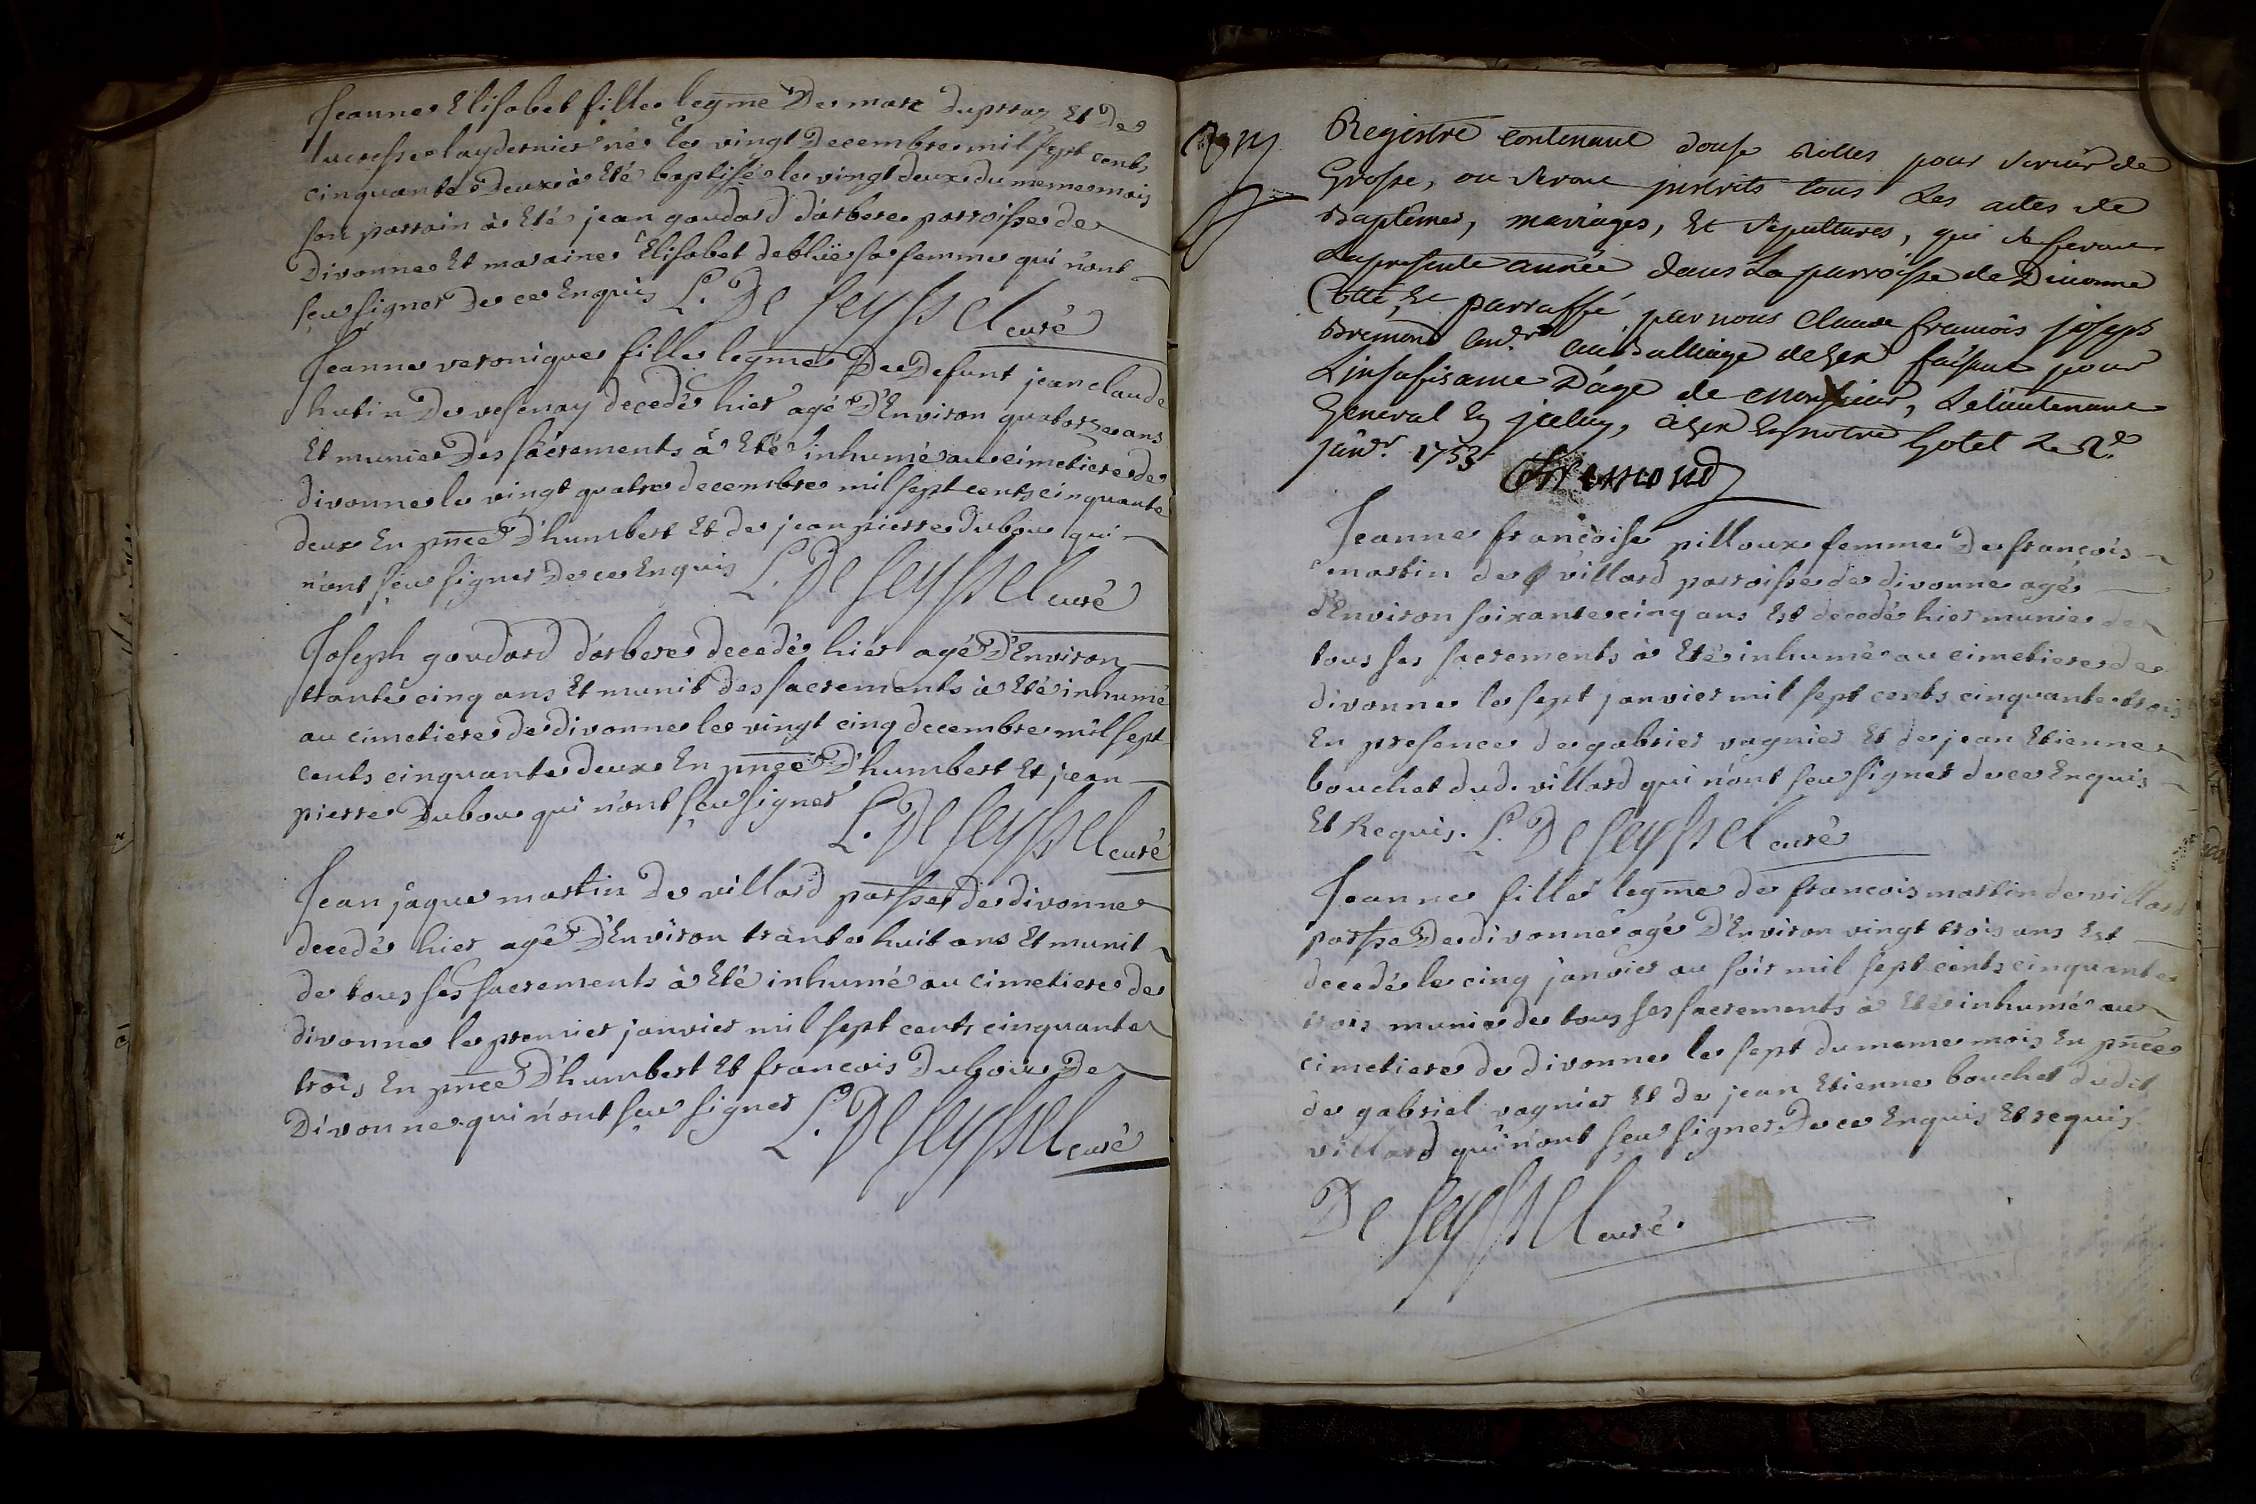 Jeanne Elisabet fille legme De marc Dupraz Et De
lucresse laydernier née le vingt Decembre mil sept cents
cinquante Deux à Eté baptisée le vingt deux du meme mois
son parrain à Eté jean goudard d'arbere parroisse de
Divonne Et maraine Elisabet deblüe sa femme qui n'ont
sçeu signer De ce Enquis L. De Seyssel curé
Jeanne veronique fille legme De Defunt jean claude
hutin De vesenay decedée hier agé D'Environ quatorze ans
Et munie Des sacrements à Eté inhumé au cimetiere de
divonne le vingt quatre decembre mil sept cents cinquante
deux En pnce D'humbert Et de jean pierre Dubou qui
n'ont sçeu signer De ce Enquis L. De Seyssel curé
Joseph goudard d'arbere decedé hiér agé D'Environ
trante cinq ans Et munit des sacrements à Eté inhumé
au cimetiere de divonne le vingt cinq decembre mil sept
cents cinquante deux En pnce D'humbert Et jean
pierre Dubou qui n'ont sçeu signer L. De Seyssel curé
Jean jaque martin De villard parsse de divonne
decedé hier agé D'Environ trante huit ans Et munit
de tous ses sacrements à Eté inhumé au cimetiere de
divonne le premier janvier mil sept cents cinquante
trois En pnce D'humbert Et francois Dubou De
Divonne qui n'ont sçeu signer L. De Seyssel curé
Registre contenant douse Rolles pour servir de
Grosse, ou seront jnscrits tous Les actes de
Baptêmes, mariages, Et sépultures, qui se feront
La presente année dans La parroisse de Divonne
Cotté, Et parraffé par nous Claude francois joseph
Bremond au Balliage de Gex faisant pour
L'insufisance D'age de Monsieur, Le lieutenant
General En jceluy, à Gex En notre hotel Le 2e
janvr. 1753 Bremond
Jeanne francoise pilloux femme De francois
martin de villard parroisse de divonne agée
d'Environ soixante cinq ans Est decedée hier munie de
tous ses sacrements à Eté inhumé au cimetiere de
divonne le sept janvier mil sept cents cinquante trois
En presence de gabriel vagnier Et de jean Etienne
bouchet dud. villard qui n'ont sçeu signer de ce Enquis
Et Requis. L. De Seyssel curé
Jeanne fille legme de francois martin de villard
parsse De divonne agé D'Environ vingt trois ans Est
decedée le cinq janvier au soir mil sept cents cinquante
trois munie de tous ses sacrements à Eté inhumé au
cimetiere de divonne le sept du meme mois En pnce
de gabriel vagnier Et de jean Etienne bouchet dudit
villard qui n'ont sçeu signer De ce Enquis Et requis
De Seyssel curé.